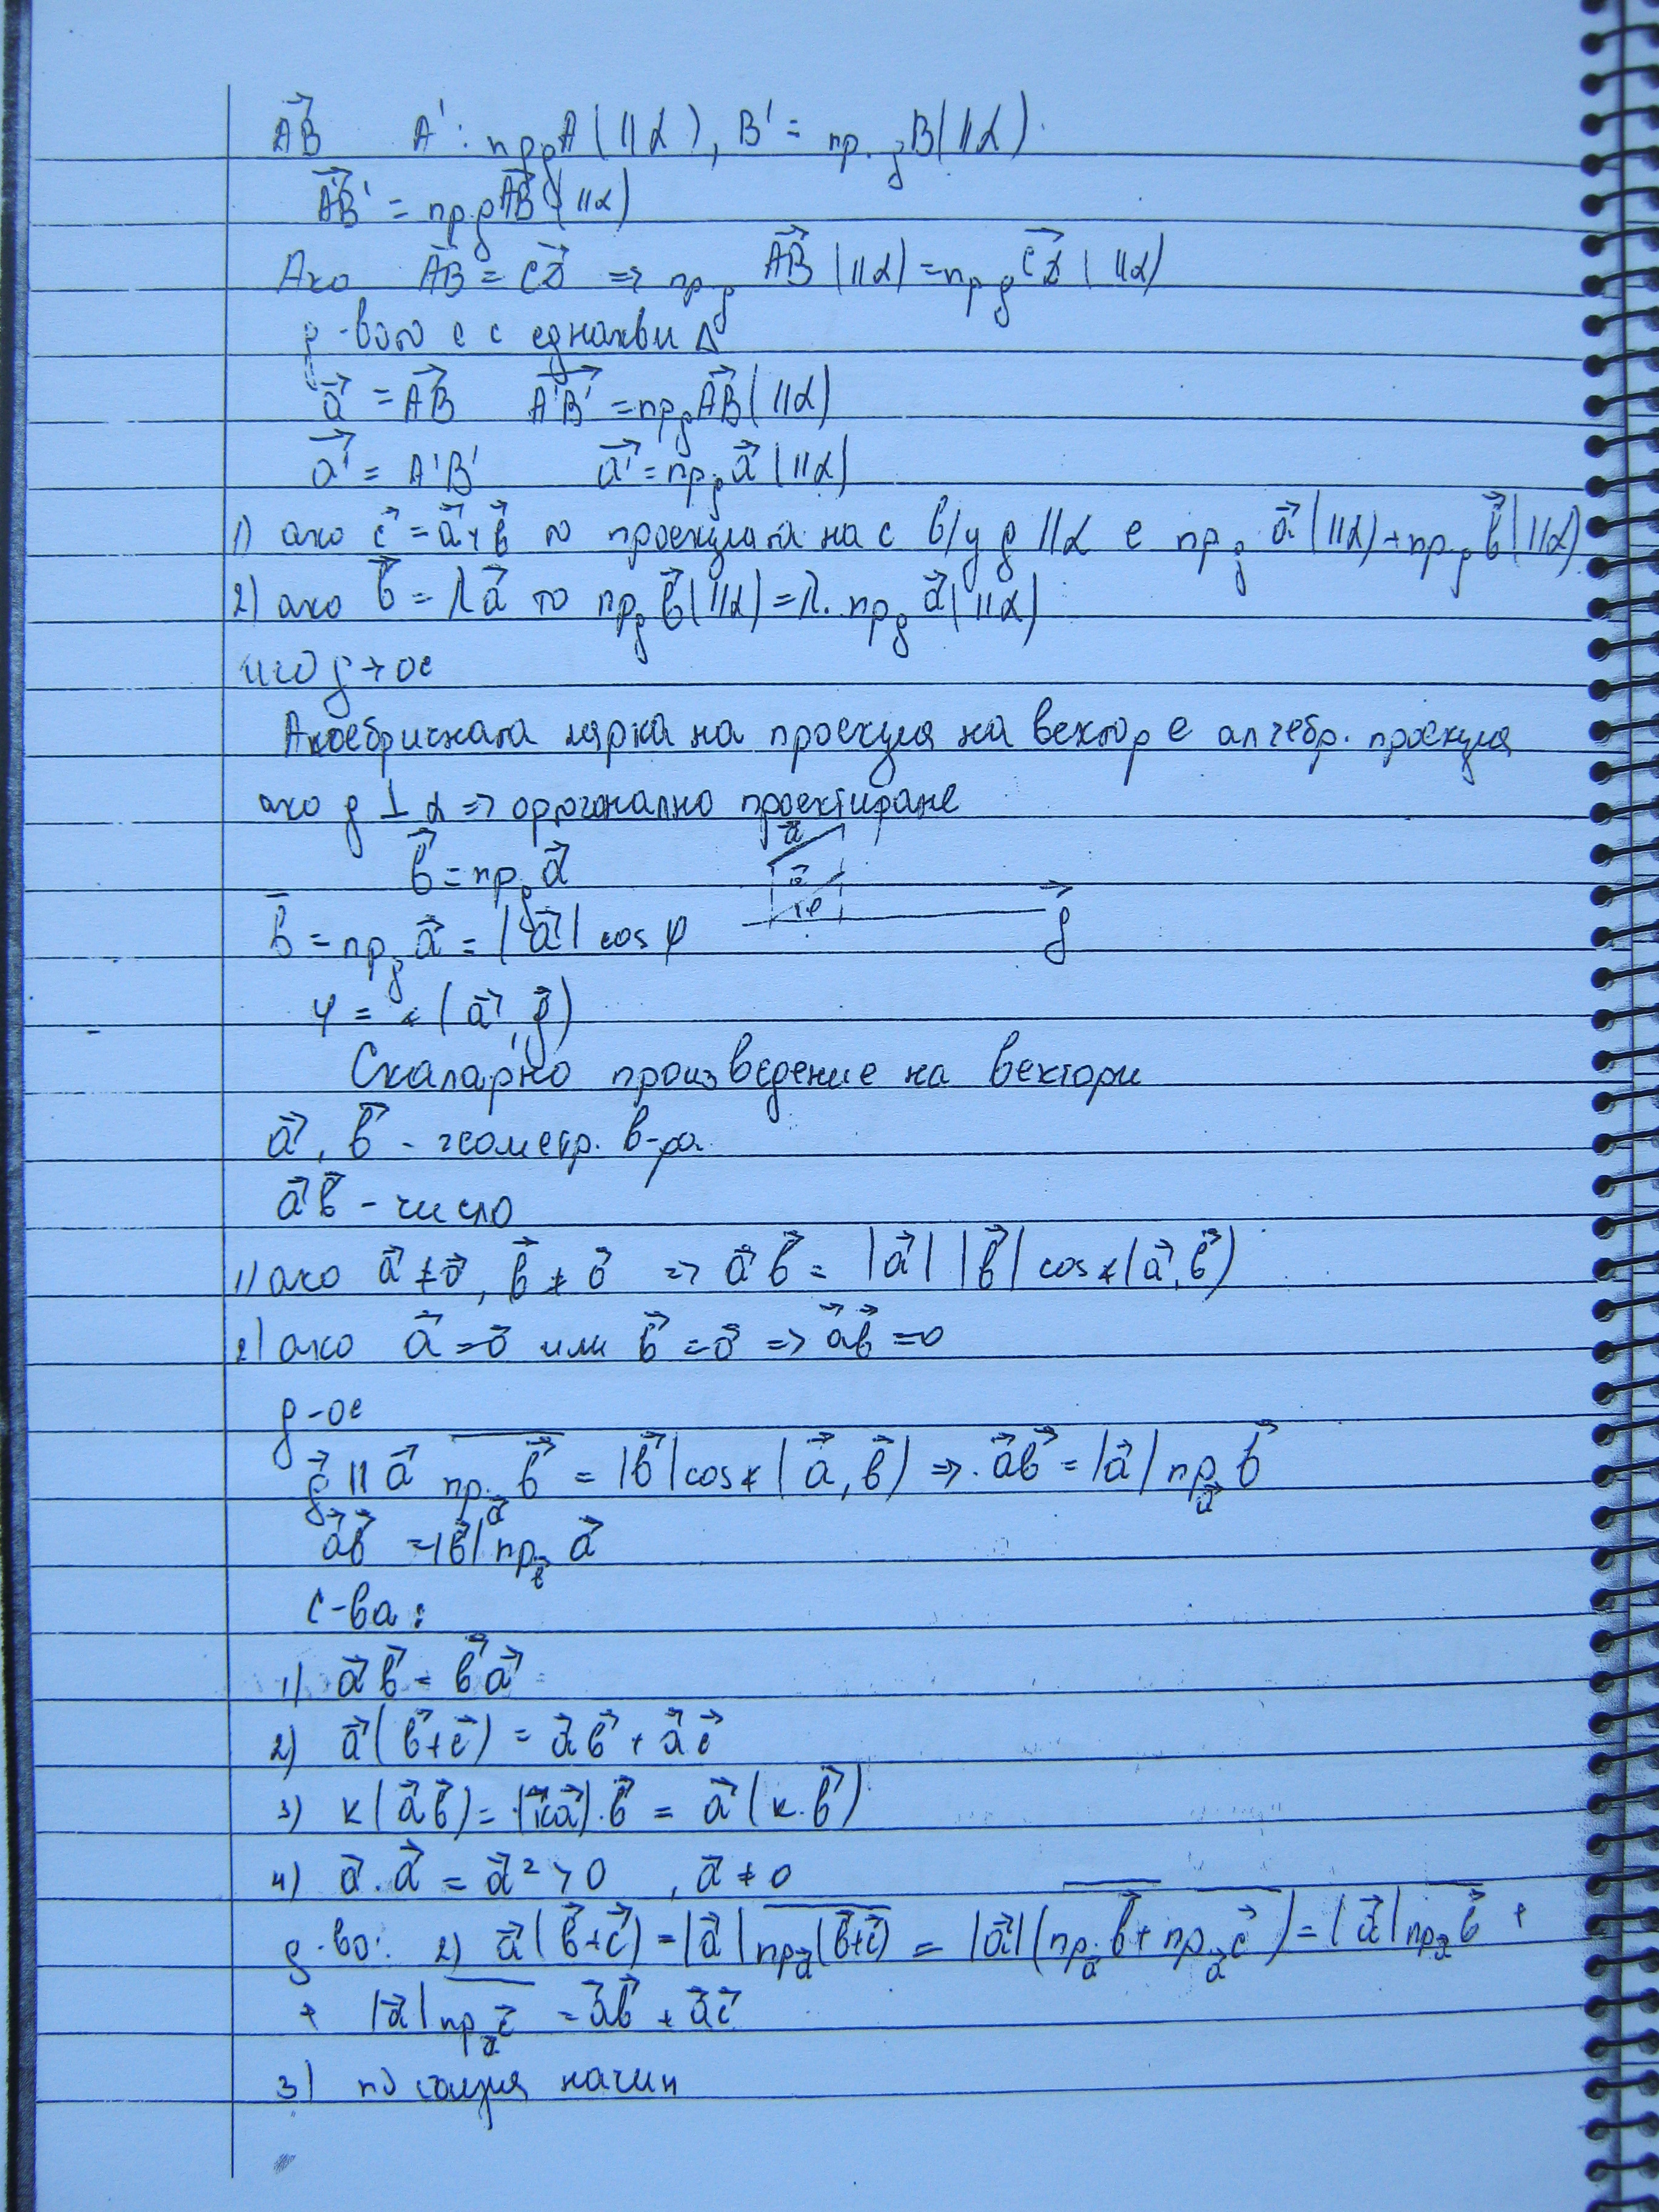 AB⃗ A' : пр g A (∥α), B' = пр. g B (∥α).
A'B'⃗ = пр. g AB⃗ (∥α)
Ако AB⃗ = CD⃗ => пр g AB⃗ (∥α) = пр g CD⃗ (∥α)
g-вото е с еднакви Δ
a⃗ = AB⃗ A'B'⃗ = пр g AB⃗ (∥α)
a'⃗ = A'B' a'⃗ = пр. g a⃗ (∥α)
1) ако c⃗ = a⃗ + b⃗ то проекцията на c в/у g ∥α е пр g a⃗ (∥α) + пр. g b⃗ (∥α)
2) ако b⃗ = λa⃗ то пр g b⃗ (∥α) = λ. пр g a⃗ (∥α)
g → ос
мярка на проекция на вектор е алгебр. проекция
ако g ⊥ α => ортогонално проектиране
b⃗ = пр g a⃗
a⃗
φ
g
b̅ = пр g a⃗ = |a⃗| cos φ
φ = ∢(a⃗, g⃗)
Скаларно произведение на вектори
a⃗, b⃗ - геометр. в-ра
a⃗ b⃗ - число
1) ако a⃗ ≠ o⃗, b⃗ ≠ o⃗ => a⃗ b⃗ = |a⃗| |b⃗| cos ∢(a⃗, b⃗)
2) ако a⃗ = o⃗ или b⃗ = o⃗ => a⃗b⃗ = 0
g - ос
g⃗ ∥ a⃗ пр. a⃗ b⃗ = |b⃗| cos ∢(a⃗, b⃗) => a⃗b⃗ = |a⃗| пр a⃗ b⃗
a⃗b⃗ = |b⃗| пр b⃗ a⃗
С-ва:
1) a⃗ b⃗ = b⃗ a⃗
2) a⃗ (b⃗ + c⃗) = a⃗ b⃗ + a⃗ c⃗
3) к (a⃗ b⃗) = (кa⃗). b⃗ = a⃗ (к. b⃗)
4) a⃗. a⃗ = a⃗² > 0 , a⃗ ≠ 0
g-во: 2) a⃗ (b⃗ + c⃗) = |a⃗| пр a⃗ (b⃗ + c⃗) = |a⃗| (пр a⃗ b⃗ + пр a⃗ c⃗) = |a⃗| пр a⃗ b⃗ +
+ |a⃗| пр a⃗ c⃗ = a⃗b⃗ + a⃗c⃗
3) по същия начин